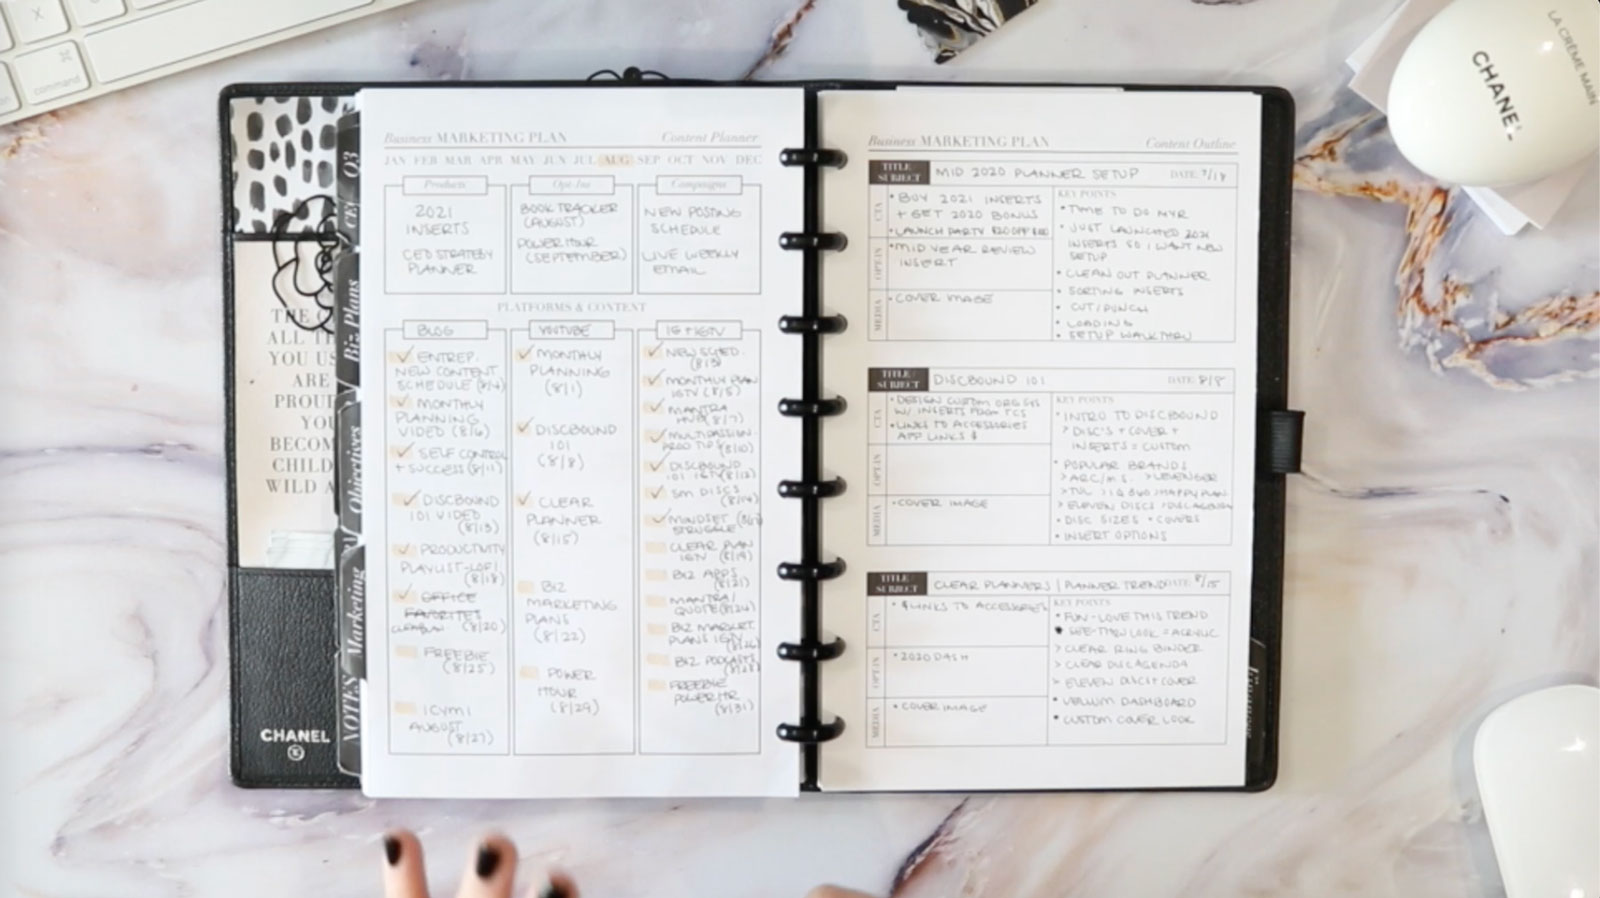 X
⌘
command
LA CRÈME MAIN
CHANEL
Q3
Biz Plans
Objectives
Marketing
NOTES
ALL
YOU US
ARE
PROU
YOU
BECOM
CHILD
WILD A
CHANEL
Business MARKETING PLAN
Content Planner
JAN FEB MAR APR MAY JUN JUL AUG SEP OCT NOV DEC
Products
2021
INSERTS
CEO STRATEGY
PLANNER
Opt-Ins
BOOK TRACKER
(AUGUST)
POWER HOUR
(SEPTEMBER)
Campaigns
NEW POSTING
SCHEDULE
LIVE WEEKLY
EMAIL
PLATFORMS & CONTENT
BLOG
ENTREP.
NEW CONTENT
SCHEDULE (8/4)
MONTHLY
PLANNING
VIDEO (8/6)
SELF CONTROL
+ SUCCESS (8/11)
DISCBOUND
101 VIDEO
(8/13)
PRODUCTIVITY
PLAYLIST-LOFI
(8/18)
OFFICE
FAVORITES
(8/20)
FREEBIE
(8/25)
ICYMI
AUGUST
(8/27)
YOUTUBE
MONTHLY
PLANNING
(8/1)
DISCBOUND
101
(8/8)
CLEAR
PLANNER
(8/15)
BIZ
MARKETING
PLANS
(8/22)
POWER
HOUR
(8/29)
IG + IGTV
NEW SCHED.
(8/3)
MONTHLY PLAN
IGTV (8/5)
MANTRA
(8/7)
MULTIPASSION.
PROD TIPS (8/10)
DISCBOUND
101 IGTV (8/12)
SM DISCS
(8/14)
MINDSET (8/17)
STRUGGLE
CLEAR PLAN
IGTV (8/19)
BIZ APPS
(8/21)
MANTRA/
QUOTE (8/24)
BIZ MARKET.
PLANS IGTV
(8/26)
BIZ PODCASTS
(8/28)
FREEBIE
POWER HR
(8/31)
Business MARKETING PLAN
Content Outline
TITLE/SUBJECT
MID 2020 PLANNER SETUP
DATE:
CTA
• BUY 2021 INSERTS
+ GET 2020 BONUS
• LAUNCH PARTY
OPT-IN
• MID YEAR REVIEW
INSERT
MEDIA
• COVER IMAGE
KEY POINTS
• TIME TO DO MYR
• JUST LAUNCHED 2021
INSERTS SO I WANT NEW
SETUP
• CLEAN OUT PLANNER
• SORTING INSERTS
• CUT/PUNCH
• LOADING
• SETUP WALKTHRU
TITLE/SUBJECT
DISCBOUND 101
DATE: 8/8
CTA
• DESIGN CUSTOM ORG SYS
W/ INSERTS FROM TCS
• LINKS TO ACCESSORIES
APP LINKS $
OPT-IN
MEDIA
• COVER IMAGE
KEY POINTS
• INTRO TO DISCBOUND
> DISC'S + COVER +
INSERTS = CUSTOM
• POPULAR BRANDS
> ARC/M.S. > LEVENGER
> ELEVEN DISCS > DISCAGENDA
• DISC SIZES • COVERS
• INSERT OPTIONS
TITLE/SUBJECT
CLEAR PLANNERS | PLANNER TREND
DATE: 8/15
CTA
• $ LINKS TO ACCESSORIES
OPT-IN
• 2020 DASH
MEDIA
• COVER IMAGE
KEY POINTS
• FUN - LOVE THIS TREND
• SEE-THRU LOOK = ACRYLIC
> CLEAR RING BINDER
> CLEAR DISCAGENDA
> ELEVEN DISCS + COVER
• VELLUM DASHBOARD
• CUSTOM COVER LOOK